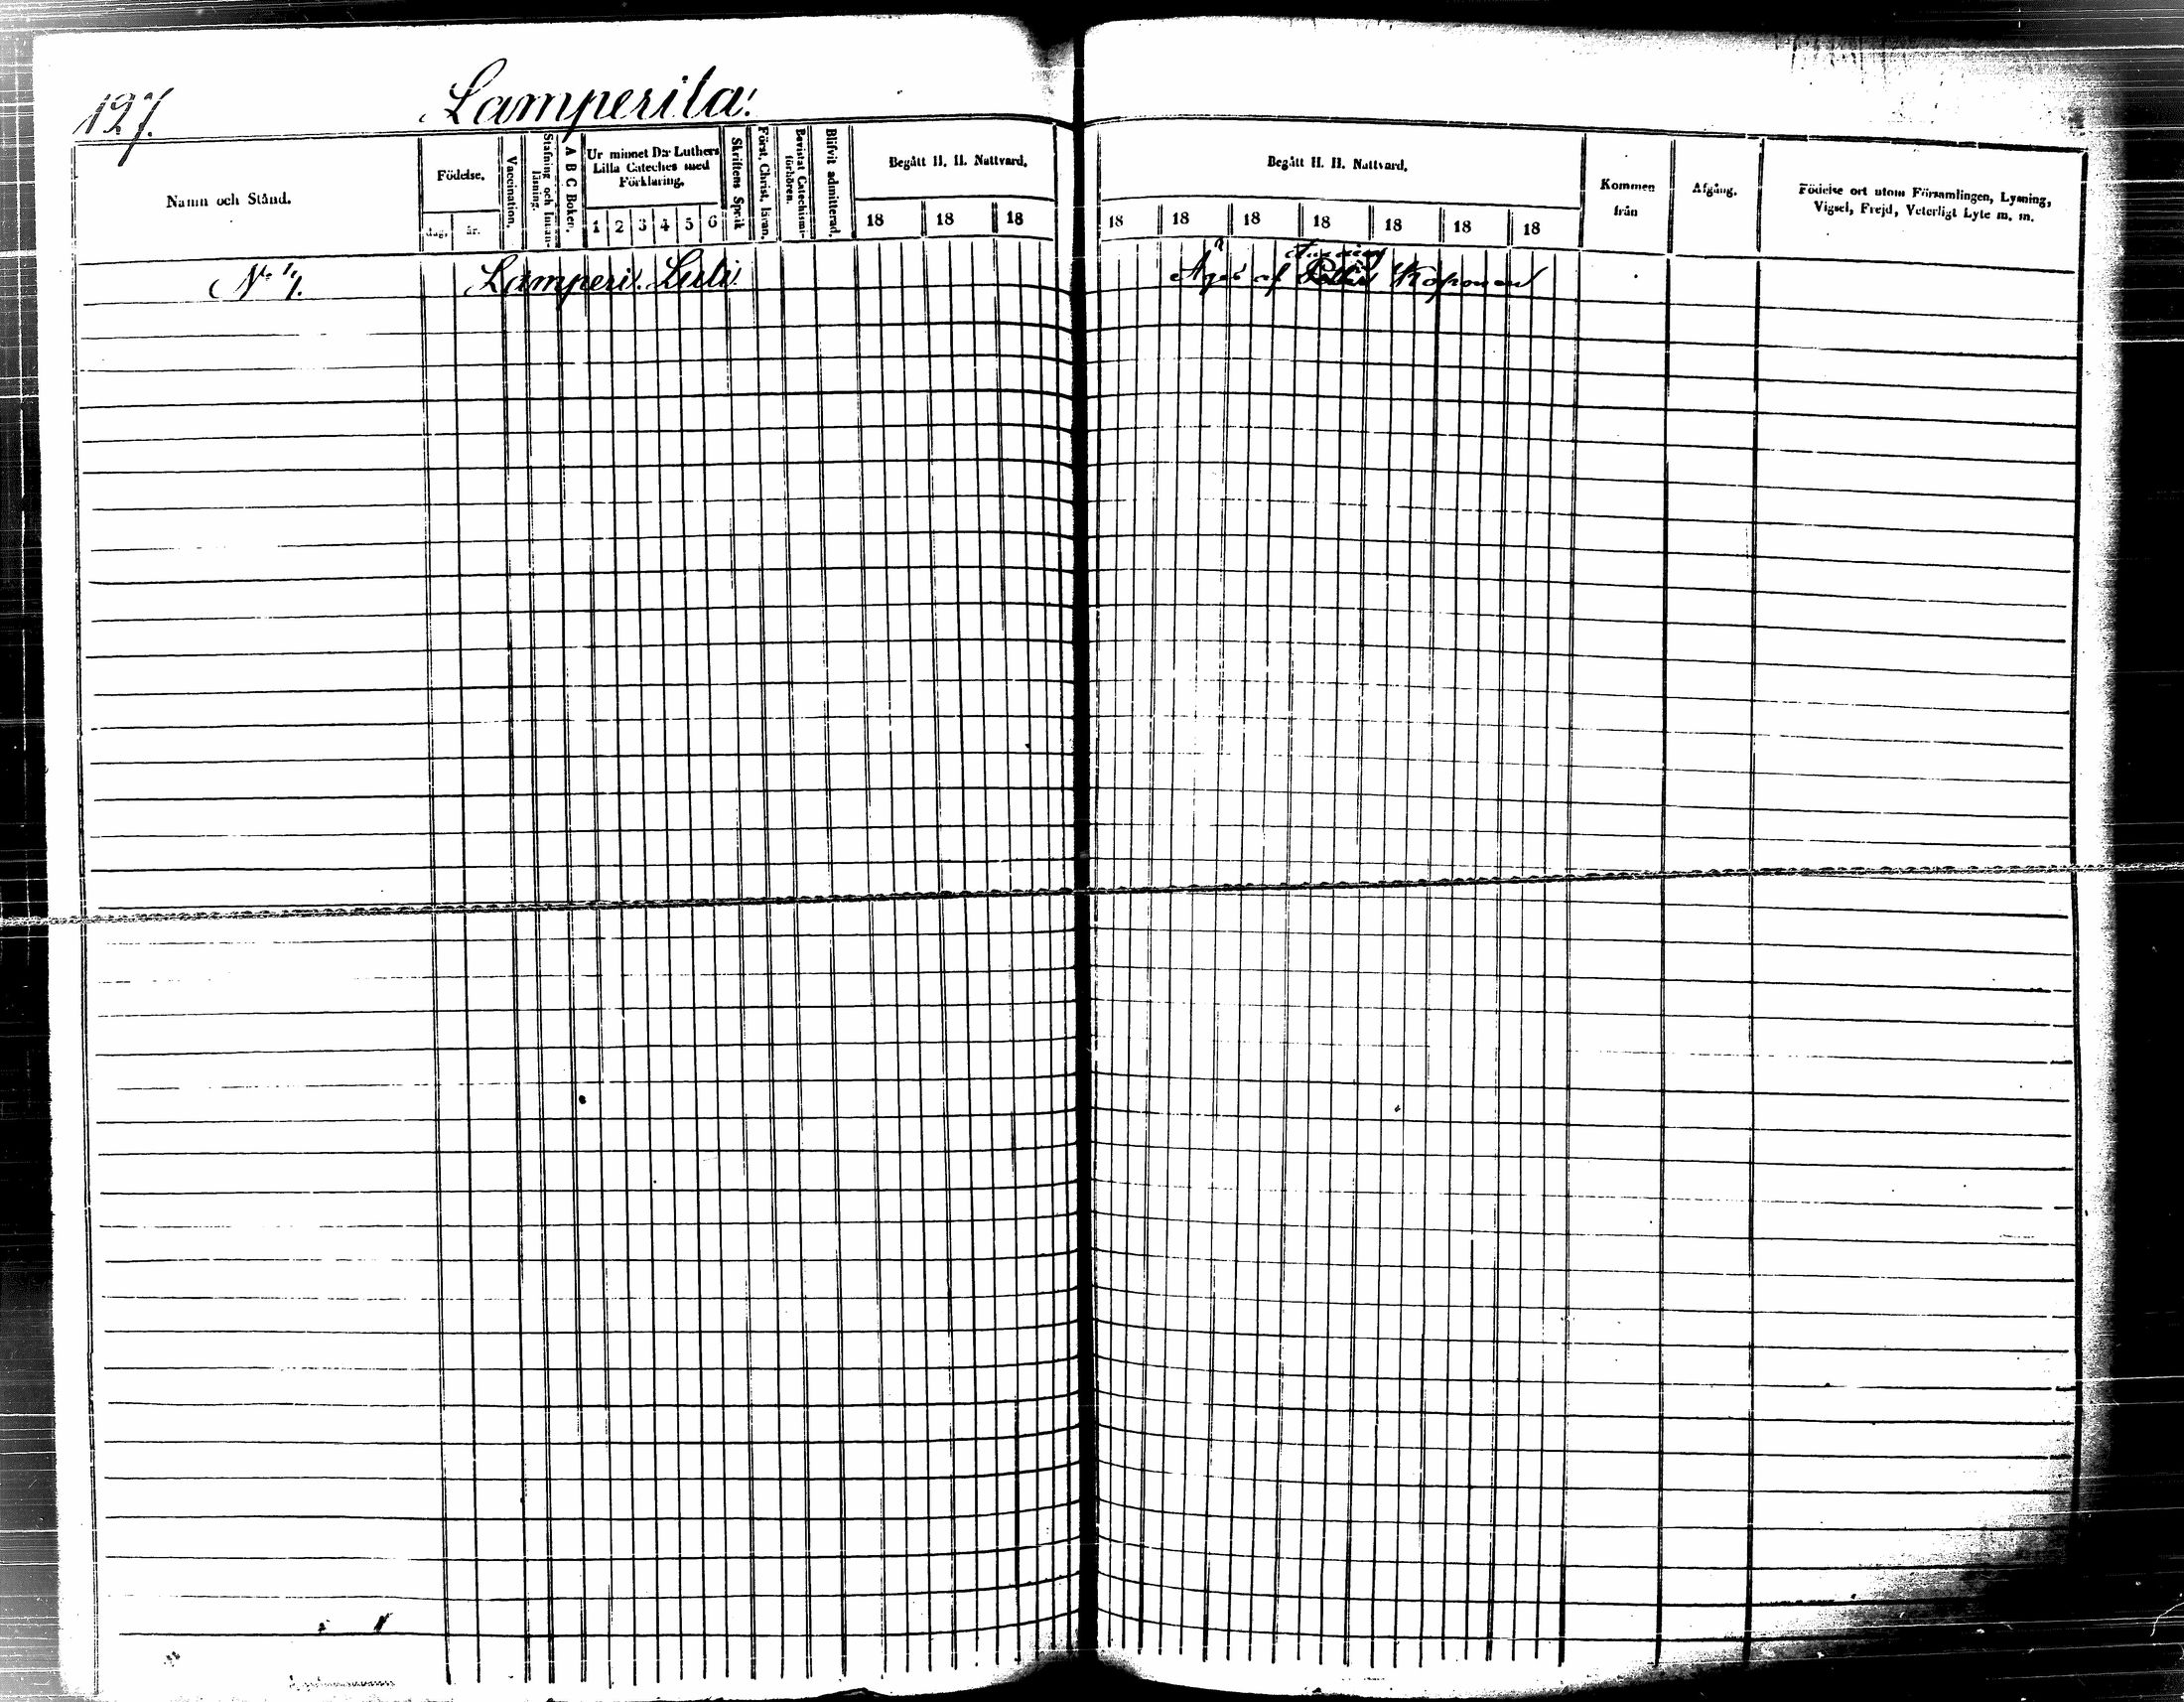 127.
Lamperila.
Namn och Stånd.
Födelse.
dag.
år.
Vaccination.
Stafning och Innan-läsning.
A B C Boken.
Ur minnet D:r Luthers Lilla Cateches med Förklaring.
1 2 3 4 5 6
Skriftens Språk
Först. Christ. läran.
Bevistat Catechismi-förhören.
Blifvit admitterad.
Begått H. H. Nattvard.
18 18 18
Begått H. H. Nattvard.
18 18 18 18 18 18 18
Kommen från
Afgång.
Födelse ort utom Församlingen, Lysning, Vigsel, Frejd, Veterligt Lyte m. m.
N:o 1. Lamperi. Äges af Koponen